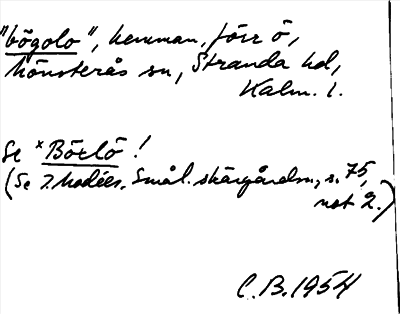 "bögolo", hemman, förr ö,
Mönsterås sn, Stranda hd,
Kalm. l.
Se *Böxlö!
(Se J. Modéer, Smål. skärgårdsn., s. 75,
not 2.)
C.B. 1954